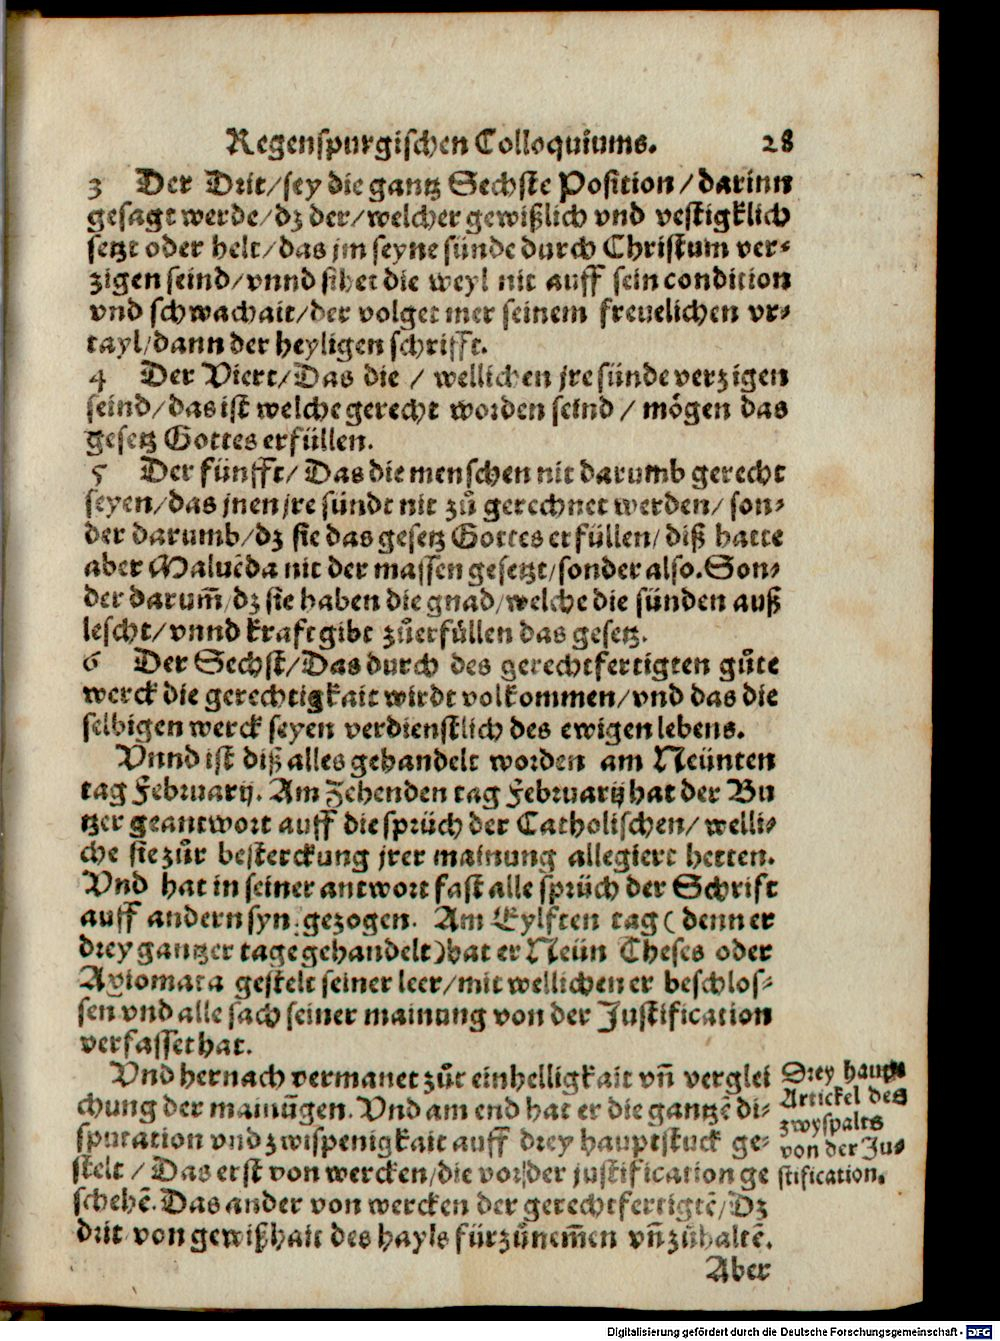 Regenspurgischen Colloquiums. 28
3 Der Drit/sey die gantz Sechste Position/darinn
gesagt werde/dz der/welcher gewißlich vnd vestigklich
setzt oder helt/das jm seyne sünde durch Christum ver-
zigen seind/vnnd sihet die weyl nit auff sein condition
vnd schwachait/der volget mer seinem freuelichen vr-
tayl/dann der heyligen schrifft.
4 Der Viert/Das die / wellichen jre sünde verzigen
seind/das ist welche gerecht worden seind / mögen das
gesetz Gottes erfüllen.
5 Der fünfft/Das die menschen nit darumb gerecht
seyen/das jnen jre sündt nit zů gerechnet werden/son-
der darumb/dz sie das gesetz Gottes erfüllen/diß hatte
aber Maluẽda nit der massen gesetzt/sonder also.Son-
der darum̃/dz sie haben die gnad/welche die sünden auß
lescht/vnnd kraft gibt zůerfüllen das gesetz.
6 Der Sechst/Das durch des gerechtfertigten gůte
werck die gerechtigkait wirdt volkommen/vnd das die
selbigen werck seyen verdienstlich des ewigen lebens.
Vnnd ist diß alles gehandelt worden am Neünten
tag Februarij. Am Zehenden tag Februarij hat der Bu
tzer geantwort auff die sprüch der Catholischen/welli-
che sie zůr besterckung jrer mainung allegiert hetten.
Vnd hat in seiner antwort fast alle sprüch der Schrift
auff andern syn gezogen. Am Eylften tag (denn er
drey gantzer tage gehandelt) hat er Neün Theses oder
Axiomata gestelt seiner leer/mit wellichen er beschlos-
sen vnd alle sach seiner mainung von der Justification
verfasset hat.
Vnd hernach vermanet zůr einhelligkait vñ verglei
chung der mainũgen. Vnd am end hat er die gantzẽ di-
sputation vnd zwispenigkait auff drey hauptstuck ge-
stelt / Das erst von wercken/die vor der justification ge
schehẽ. Das ander von wercken der gerechtfertigtẽ/Dz
drit von gewißhait des hayls fürzůnem̃en vñ zůhaltẽ.
Aber
Drey haupt
Artickel des
zwyspalts
von der Ju-
stification.
Digitalisierung gefördert durch die Deutsche Forschungsgemeinschaft - DFG